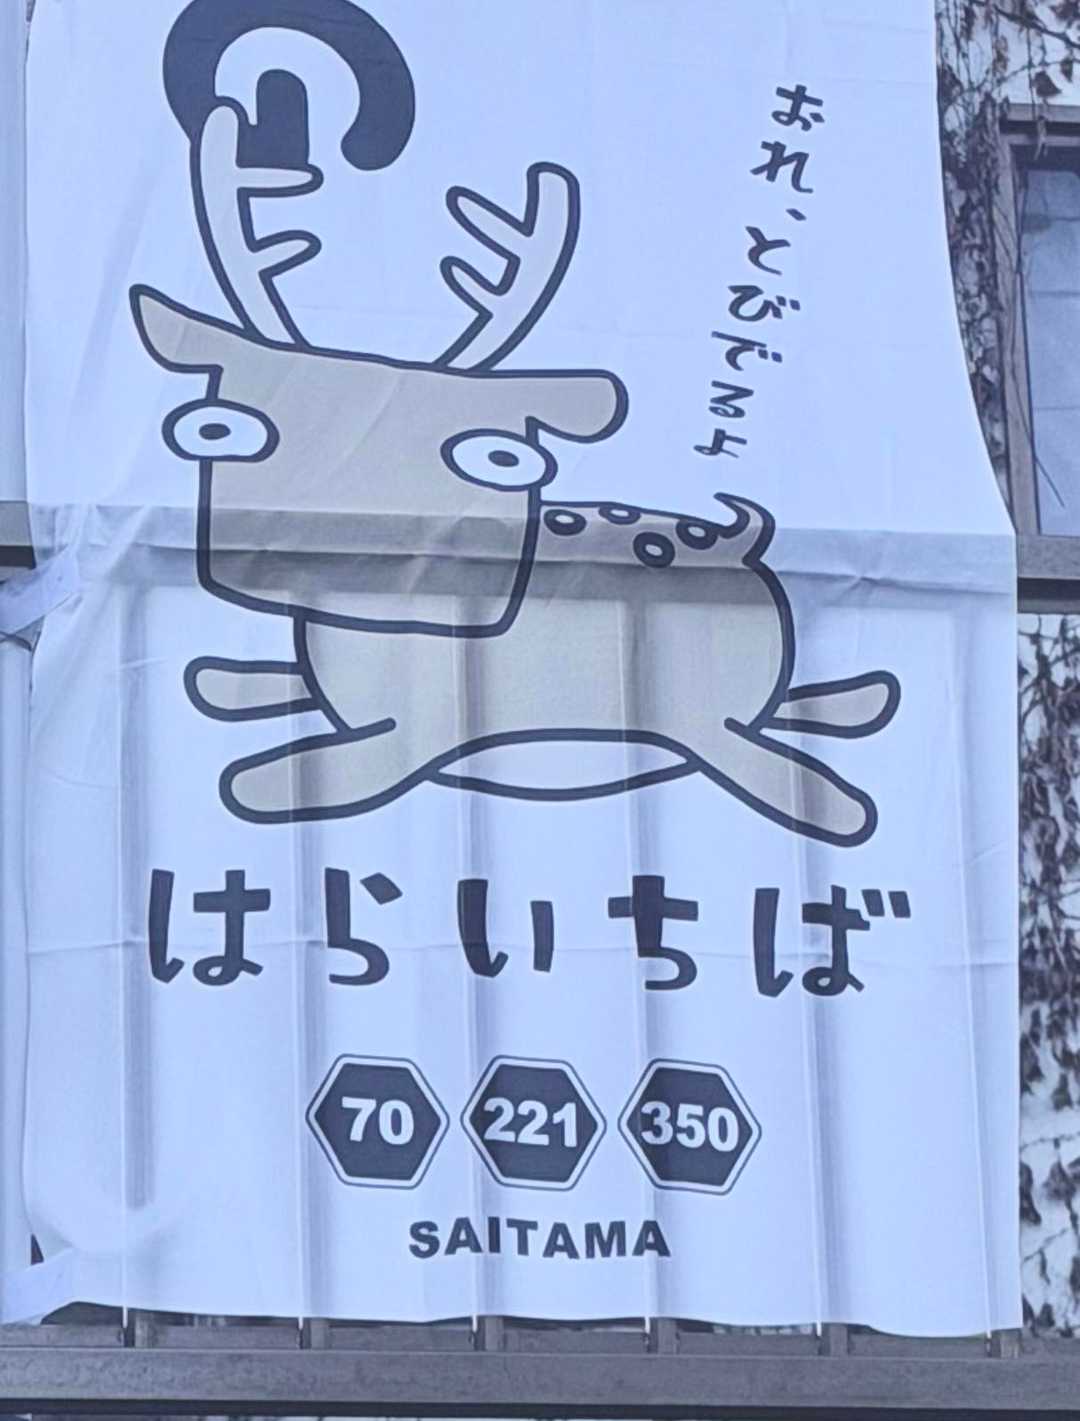 おれ、とびでるけ
はらいちば
70 221 350
SAITAMA